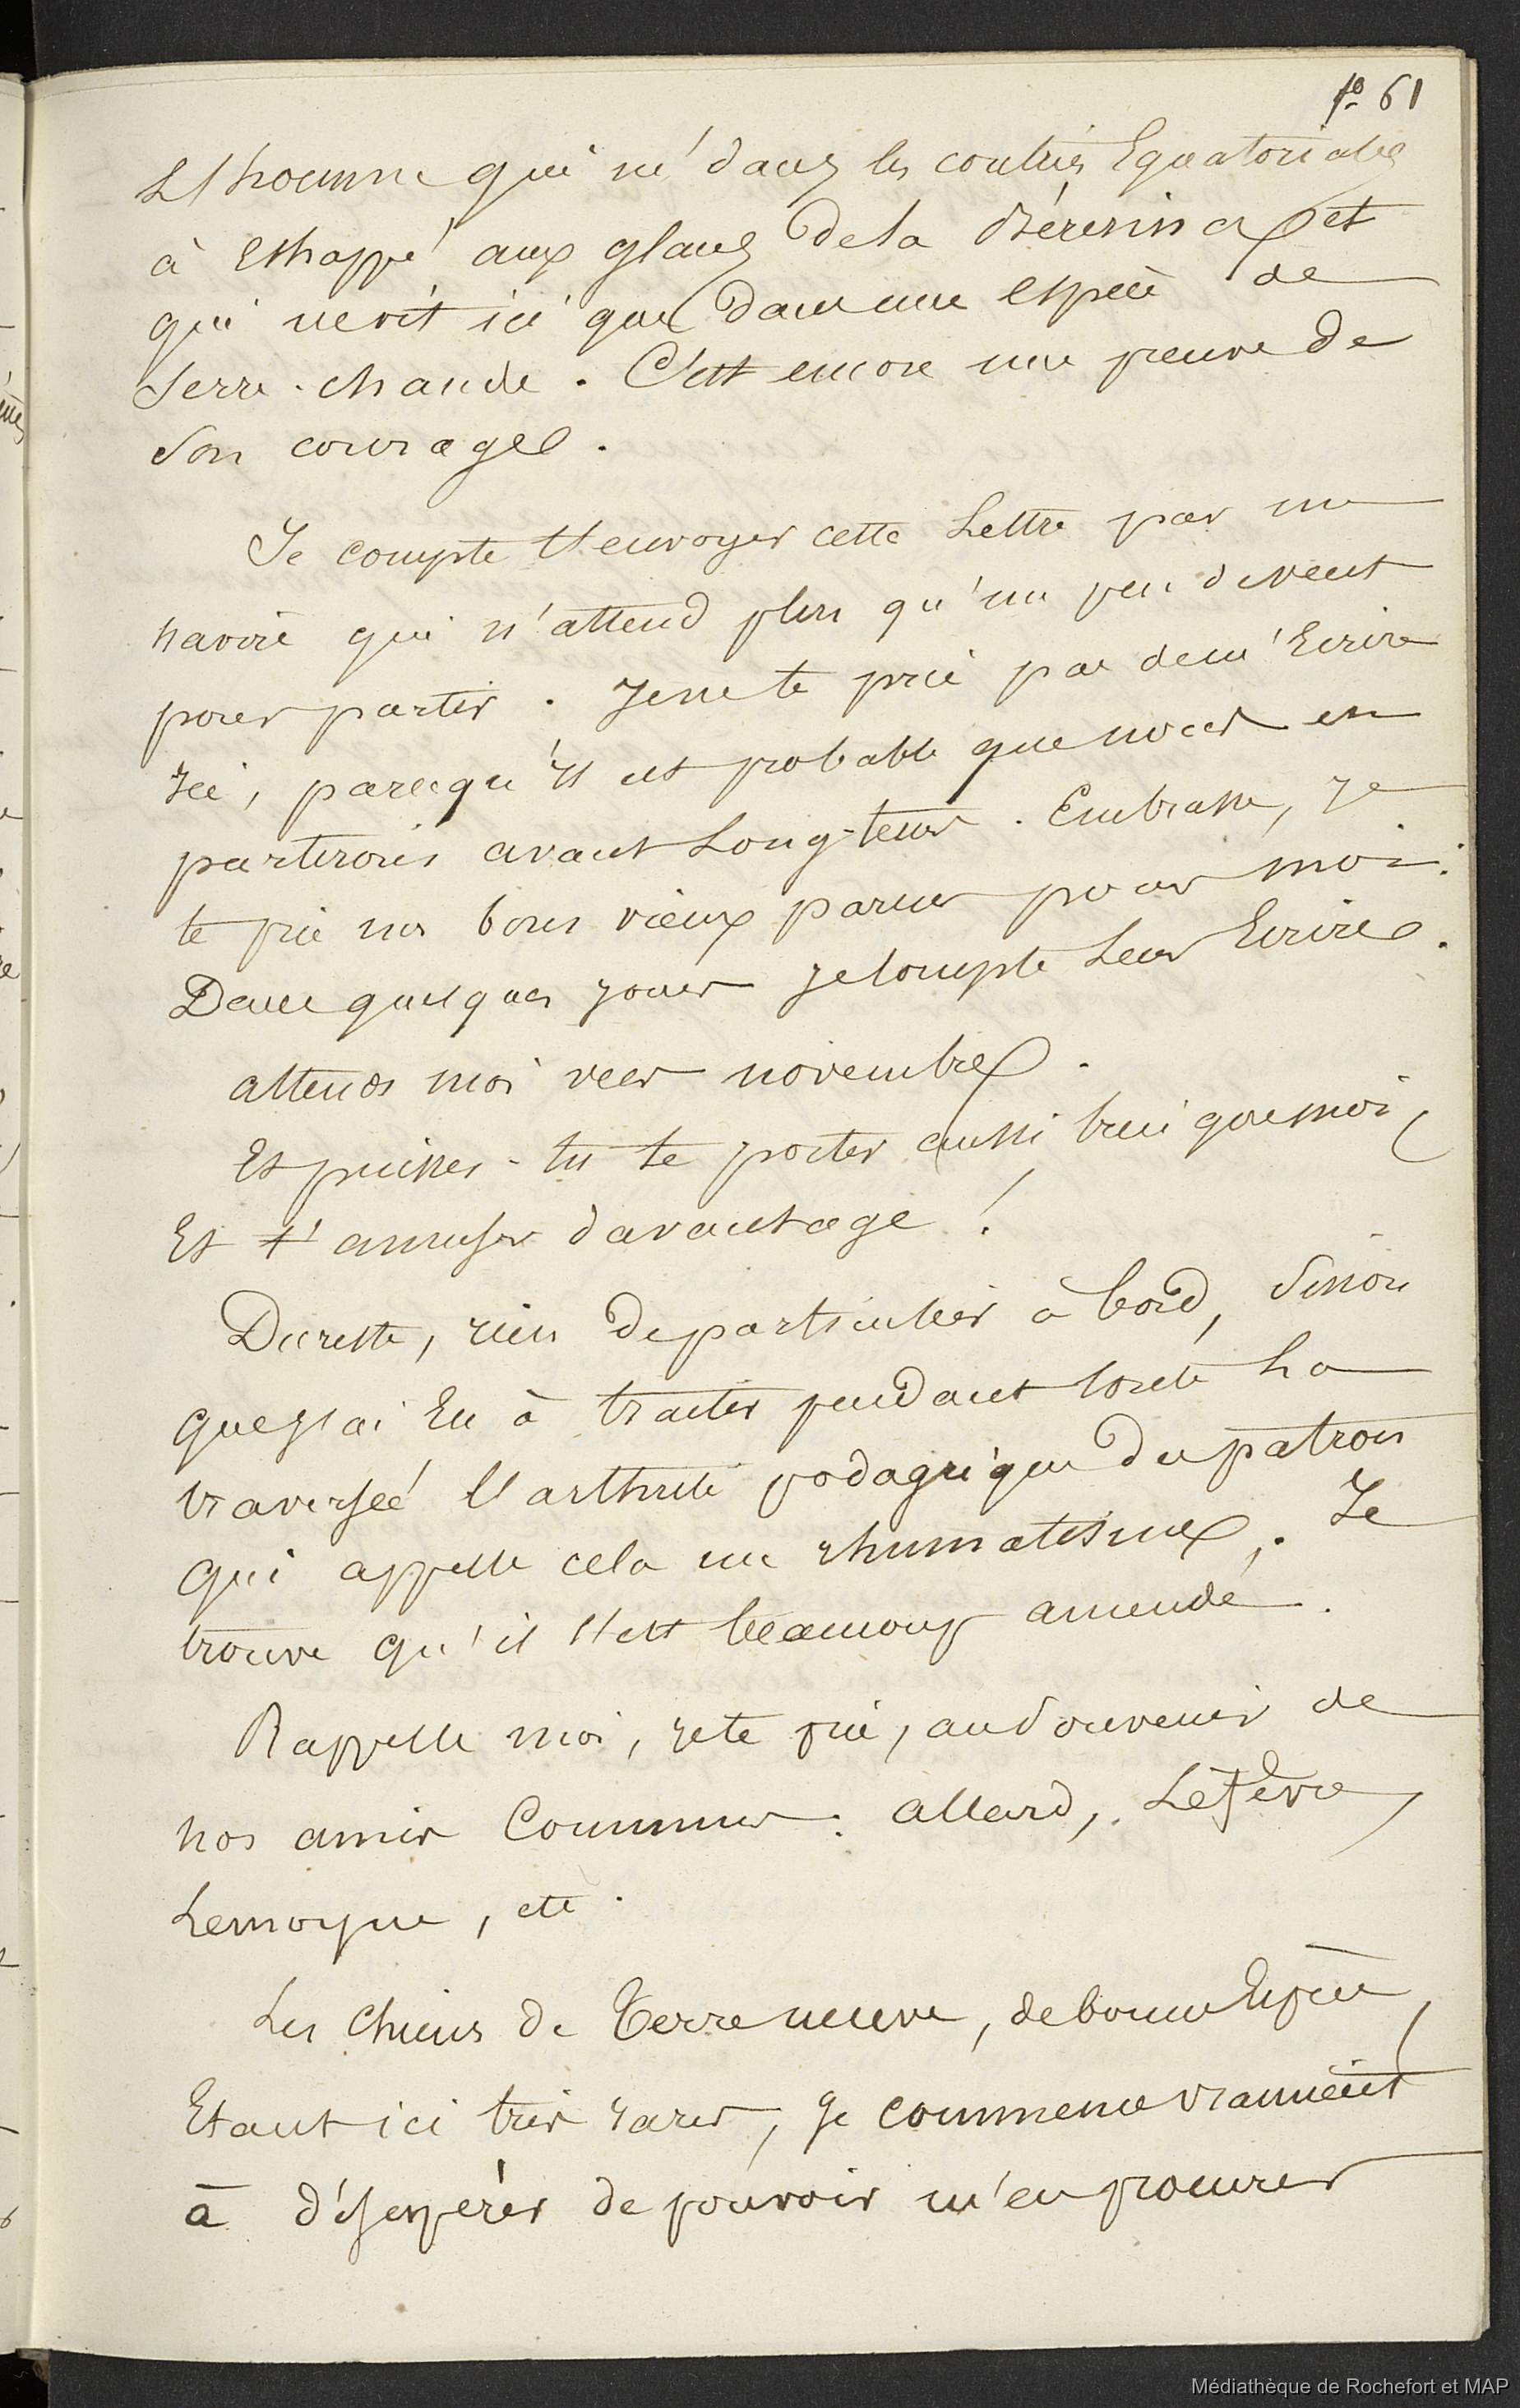 f° 61
L'homme qui né dans les contrées Equatoriales
à Echappé aux glaces de la Bérésina et
qui ne vit ici que dans une espèce de
Serre-chaude. C'est encore une preuve de
Son courage.
Je compte t'envoyer cette Lettre par un
navire qui n'attend plus qu'un peu de vent
pour partir. Je ne te prie pas de m'Ecrire
Ici, parcequ'Il est probable que nous en
partirons avant Long-tems. Embrasse, je
te prie nos bons vieux parens pour moi.
Dans quelques jours je compte Leur Ecrire.
attends moi vers novembre.
Et puisses-tu te porter aussi bien que moi
Et t'amuser davantage !
Du reste, rien de particulier à bord, Sinon
que j'ai Eu à traiter pendant toute La
traversée l'arthrite podagrique du patron
qui appelle cela un rhumatisme. Je
trouve qu'il s'est beaucoup amendé.
Rappelle moi, je te prie, au Souvenir de
nos amis Communs : allard, Lefèvre,
Lemoyne, etc.
Les Chiens de Terre neuve, de bonne Espèce,
Etant ici très rares, je commence vraiment
à désespérer de pouvoir m'en procurer
Médiathèque de Rochefort et MAP